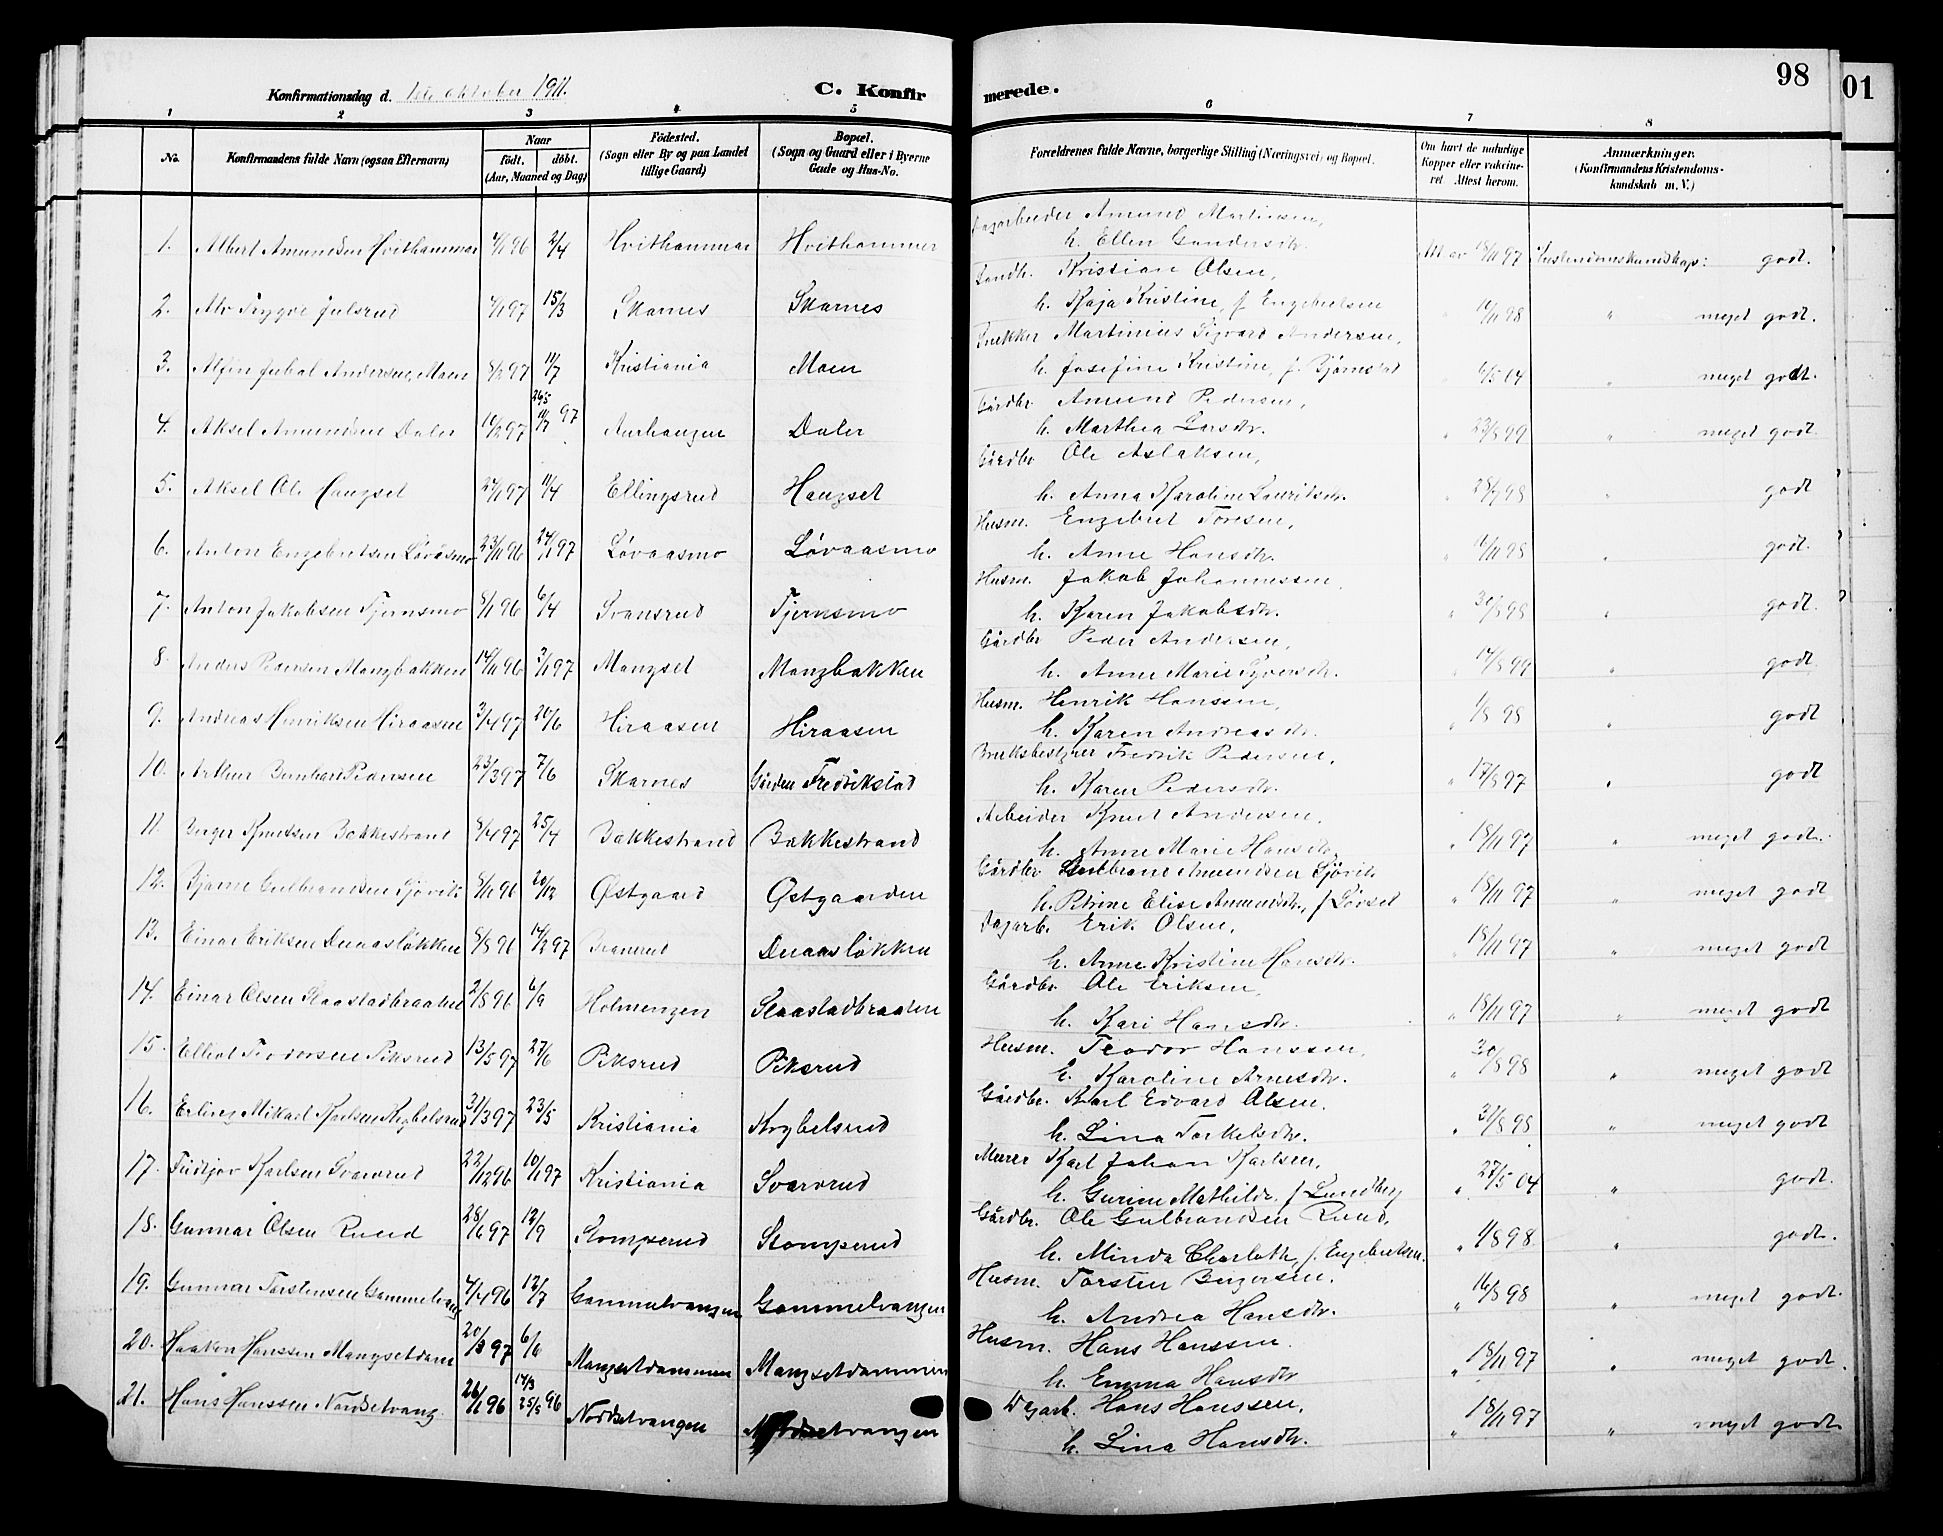 98
01
Konfirmationsdag d. 1ste oktober 1911.
C. Konfir merede.
1 2 3 4 5 6 7 8
No.
Konfirmandens fulde Navn (ogsaa Efternavn)
Naar
født. døbt.
(Aar, Maaned og Dag)
Fødested.
(Sogn eller By og paa Landet
tillige Gaard)
Bopæl.
(Sogn og Gaard eller i Byerne
Gade og Hus-No.
Forældrenes fulde Navne, borgerlige Stilling (Næringsvei) og Bopæl.
Om havt de naturlige
Kopper eller vakcine-
ret Attest herom.
Anmærkninger.
(Konfirmandens Kristendoms-
kundskab m. V.)
Dagarbeider Amund Martinsen,
1. Albert Amundsen Hvithammar 96 2/4 Hvithammar Hvithammer h. Ellen Gundersdtr. 18/11 97 Kristendomskundskap: godt.
Landh. Kristian Olsen,
2. Alv Trygve Julsrud 97 15/3 Skarnes Skarnes h. Kaja Kristine, f. Engebretsen 98 " meget godt.
Snekker Martinius Sigvard Andersen,
3. Alfin Jubal Andersen, Moen 8/2 97 11/7 Kristiania Moen h. Josefine Kristine, f. Bjørnstad 6/5 04 " meget godt.
Gårdbr Amund Pedersen,
4. Aksel Amundsen Daler 10/2 97 97 Aurhaugen Daler h. Marthea Larsdtr. " 23/8 99 " meget godt.
Gårdbr Ole Aslaksen,
5. Aksel Ole Haugset 24/1 97 11/4 Ellingsrud Haugset h. Anna Karoline Lauritsdtr. " 98 " godt
Husm. Engebret Toresen,
6. Anton Engebretsen Løvåsmo 23/11 96 24/1 97 Løvaasmo Løvaasmo h. Anne Hansdtr. " 98 " godt.
Husm. Jakob Johannessen,
7. Anton Jakobsen Tjernsmo 8/1 96 6/4 Svansrud Tjernsmo h. Karen Jakobsdtr. " 30/8 98 " godt.
Gårdbr Peder Andersen,
8. Anders Pedersen Mangbakken 14/11 96 3/1 97 Mangset Mangbakken h. Anne Marie Syversdtr. " 14/8 99 " godt
Husm. Henrik Hanssen,
9. Andreas Henriksen Hiraasen 3/4 97 20/6 Hiraasen Hiraasen h. Karen Andreasdtr. " 1/8 98 " godt
Bruksbestyrer Fredrik Pedersen,
10. Arthur Bernhard Pedersen 23/3 97 7/6 Skarnes Gården Fredrikstad h. Karen Pedersdtr. " 17/8 97 " godt
Arbeider Knut Andersen,
11. Birger Knutsen Bakkestrand 8/4 97 25/4 Bakkestrand Bakkestrand h. Anne Marie Hansdtr. " 18/11 97 " meget godt.
Gårdbr Gulbrand Amundsen Sjøvik
12. Bjarne Gulbrandsen Sjøvik 8/11 96 20/12 Østgaard Østgaarden h. Petrine Elise Amundsdtr., f. Lørset " 18/11 97 " meget godt
Dagarb. Erik Olsen,
13. Einar Eriksen Denaasløkken 8/8 96 14/2 97 Denaasløkken h. Anne Kristine Hansdtr. 18/11 97 " meget godt
Gårdbr Ole Eriksen,
14. Einar Olsen Slaastadbraaten 2/8 96 6/9 Holmengen Slaastadbraaten h. Kari Hansdtr. " 18/11 97 " meget godt
Husm. Teodor Hanssen,
15. Teodorsen Piksrud 13/5 97 27/6 Piksrud Piksrud h. Karoline Arnesdtr. " 30/8 98 " meget godt
Gårdbr. Karl Edvard Olsen.
16. Erling Mikael Karlsen Krybelsrud 31/3 97 23/5 Kristiania Krybelsrud h. Lina Torkelsdtr. " 31/8 98 " meget godt
Murer Karl Johan Karlsen,
17. Fridtjov Karlsen Svarvrud 22/12 96 10/1 97 Kristiania Svarvrud h. Gurine Mathilde f. Lundberg " 27/5 04 " godt.
Gårdbr. Ole Gulbrandsen Ruud,
18. Gunnar Olsen Ruud 28/6 97 12/9 Stomperud Stomperud h. Minda Charlotte, f. Engebretsen. " 1/8 98 " godt.
Husm. Torsten Birgersen.
19. Gunnar Torstensen Gammelvang 4/4 96 12/7 Gammelvangen Gammelvangen h. Andrea Hansdtr. " 16/8 98 " meget godt.
Husm. Hans Hanssen.
20. Haakon Hanssen Mangsetdam 20/3 97 6/6 Mangsetdammen Mangsetdammen h. Emma Hansdtr " 18/11 97 " meget godt.
Dagarb. Hans Hanssen,
21. Hans Hanssen Nordsetvang. 26/1 96 25/5 96 Nordsetvangen Nordsetvangen h. Lina Hansdtr. " 18/11 97 " meget godt.